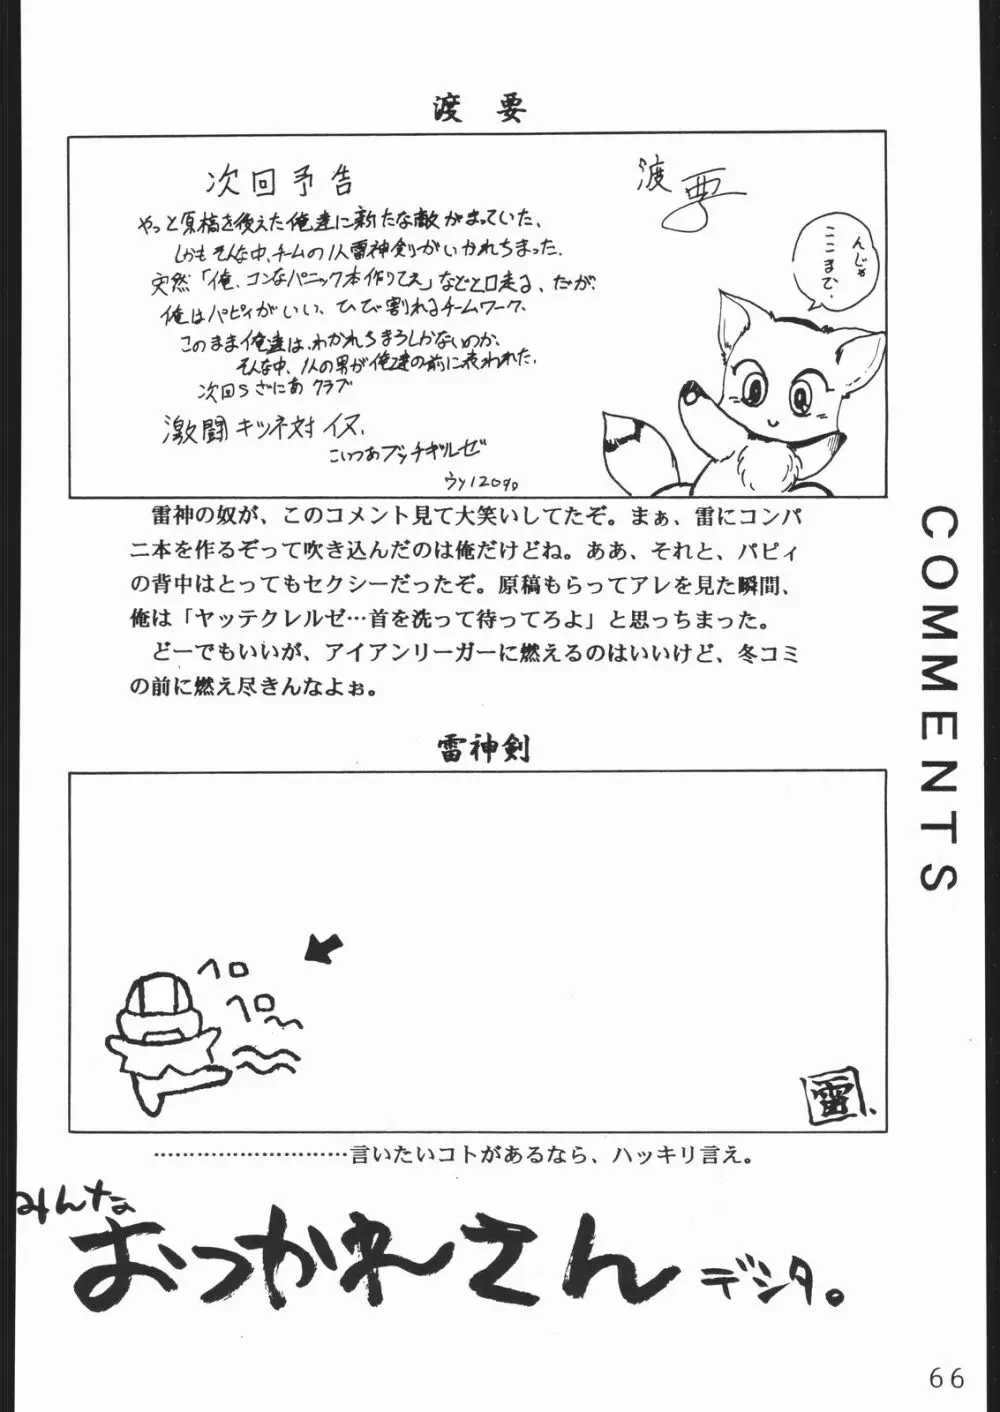 渡 要
次回予告
渡 要
やっと原稿を終えた俺達に新たな敵がまっていた、
しかもそんな中、チームの1人雷神剣がいかれちまった.
突然「俺、コンなパニック本作りてぇ」などと口走る、だが、
俺はパピィがいい、ひび割れるチームワーク、
このまま俺達は、わかれちまうしかないのか、
そんな中、1人の男が俺達の前に表われた.
次回Sざにあ クラブ
激闘 キツネ対 イヌ、
こいつあブッチギルゼ
んじゃ
ここまで、
雷神の奴が、このコメント見て大笑いしてたぞ。まぁ、雷にコンパ
ニ本を作るぞって吹き込んだのは俺だけどね。ああ、それと、パピィ
の背中はとってもセクシーだったぞ。原稿もらってアレを見た瞬間、
俺は「ヤッテクレルゼ…首を洗って待ってろよ」と思っちまった。
どーでもいいが、アイアンリーガーに燃えるのはいいけど、冬コミ
の前に燃え尽きんなよぉ。
COMMENTS
雷神剣
ヘロ
ヘロ
雷
………………………言いたいコトがあるなら、ハッキリ言え。
みんな
おつかれさんデシタ。
66